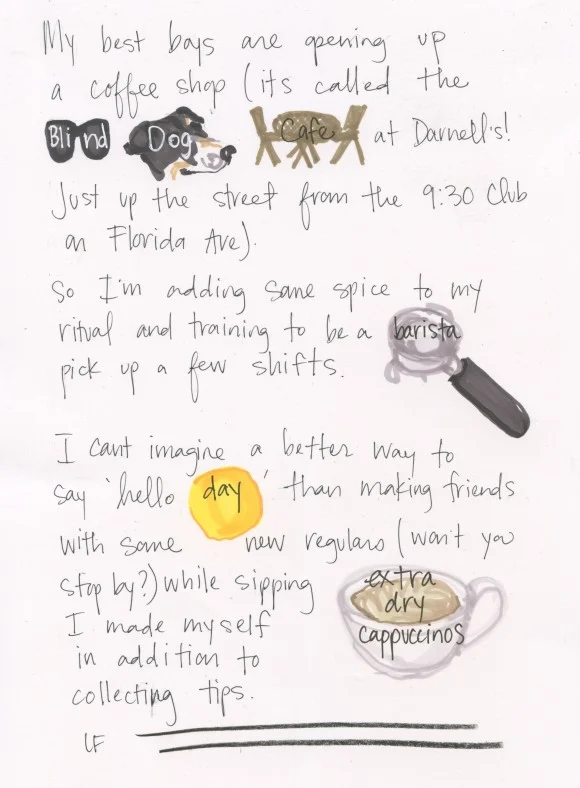 My best boys are opening up
a coffee shop (its called the
Blind Dog Cafe at Darnell's!
Just up the street from the 9:30 Club
on Florida Ave).
So I'm adding some spice to my
ritual and training to be a barista
pick up a few shifts.
I cant imagine a better way to
say 'hello day' than making friends
with some new regulars (won't you
stop by?) while sipping extra
dry
cappuccinos
I made myself
in addition to
collecting tips.
LF